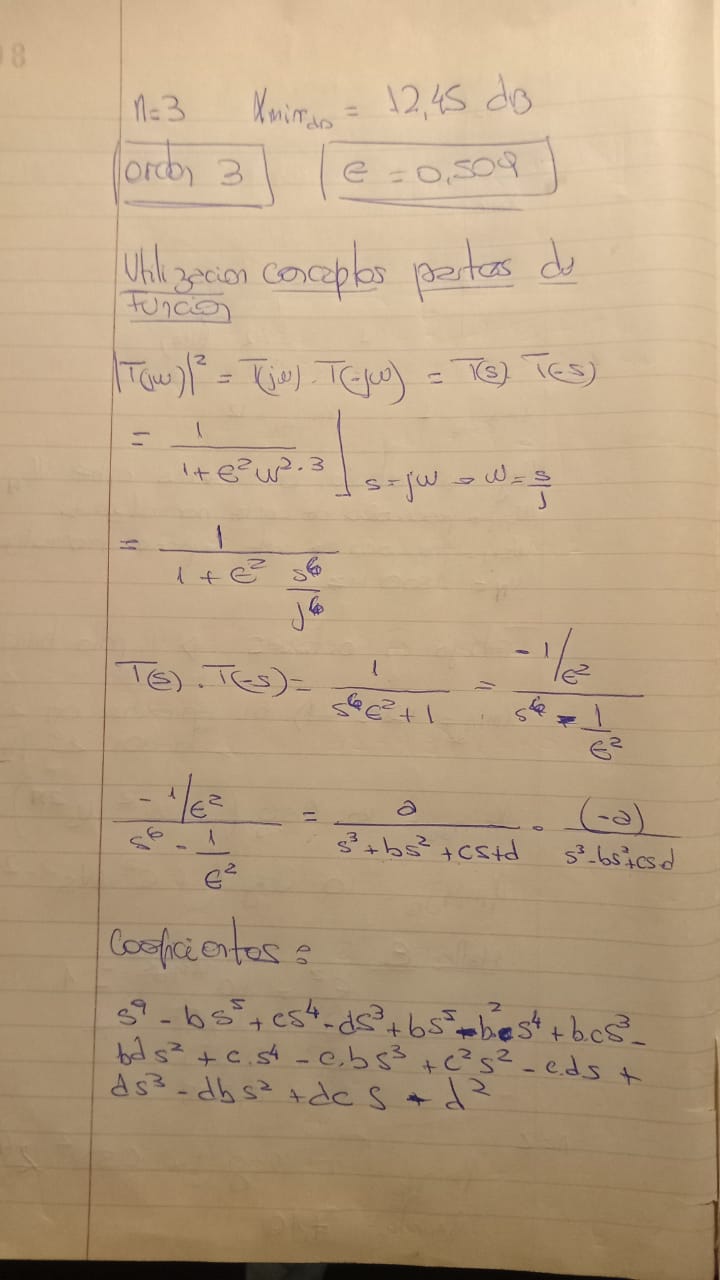 n=3 αmin dB = 12,45 dB
orden 3 ϵ = 0,509
Utilizacion conceptos partes de
Funcion
|T(jω)|² = T(jω) . T(-jω) = T(s) T(-s)
= 1 / (1 + ϵ² ω^(2·3)) | s = jω → ω = s/j
= 1 / (1 + ϵ² s⁶/j⁶)
T(s) . T(-s) = 1 / (s⁶ϵ² + 1) = (-1/ϵ²) / (s⁶ - 1/ϵ²)
(-1/ϵ²) / (s⁶ - 1/ϵ²) = a / (s³ + bs² + cs + d) . (-a) / (s³ - bs² + cs - d)
Coeficientes:
s⁹ - bs⁵ + cs⁴ - ds³ + bs⁵ - b²s⁴ + b.cs³ -
bds² + c.s⁴ - c.bs³ + c²s² - c.ds +
ds³ - dbs² + dcs - d²